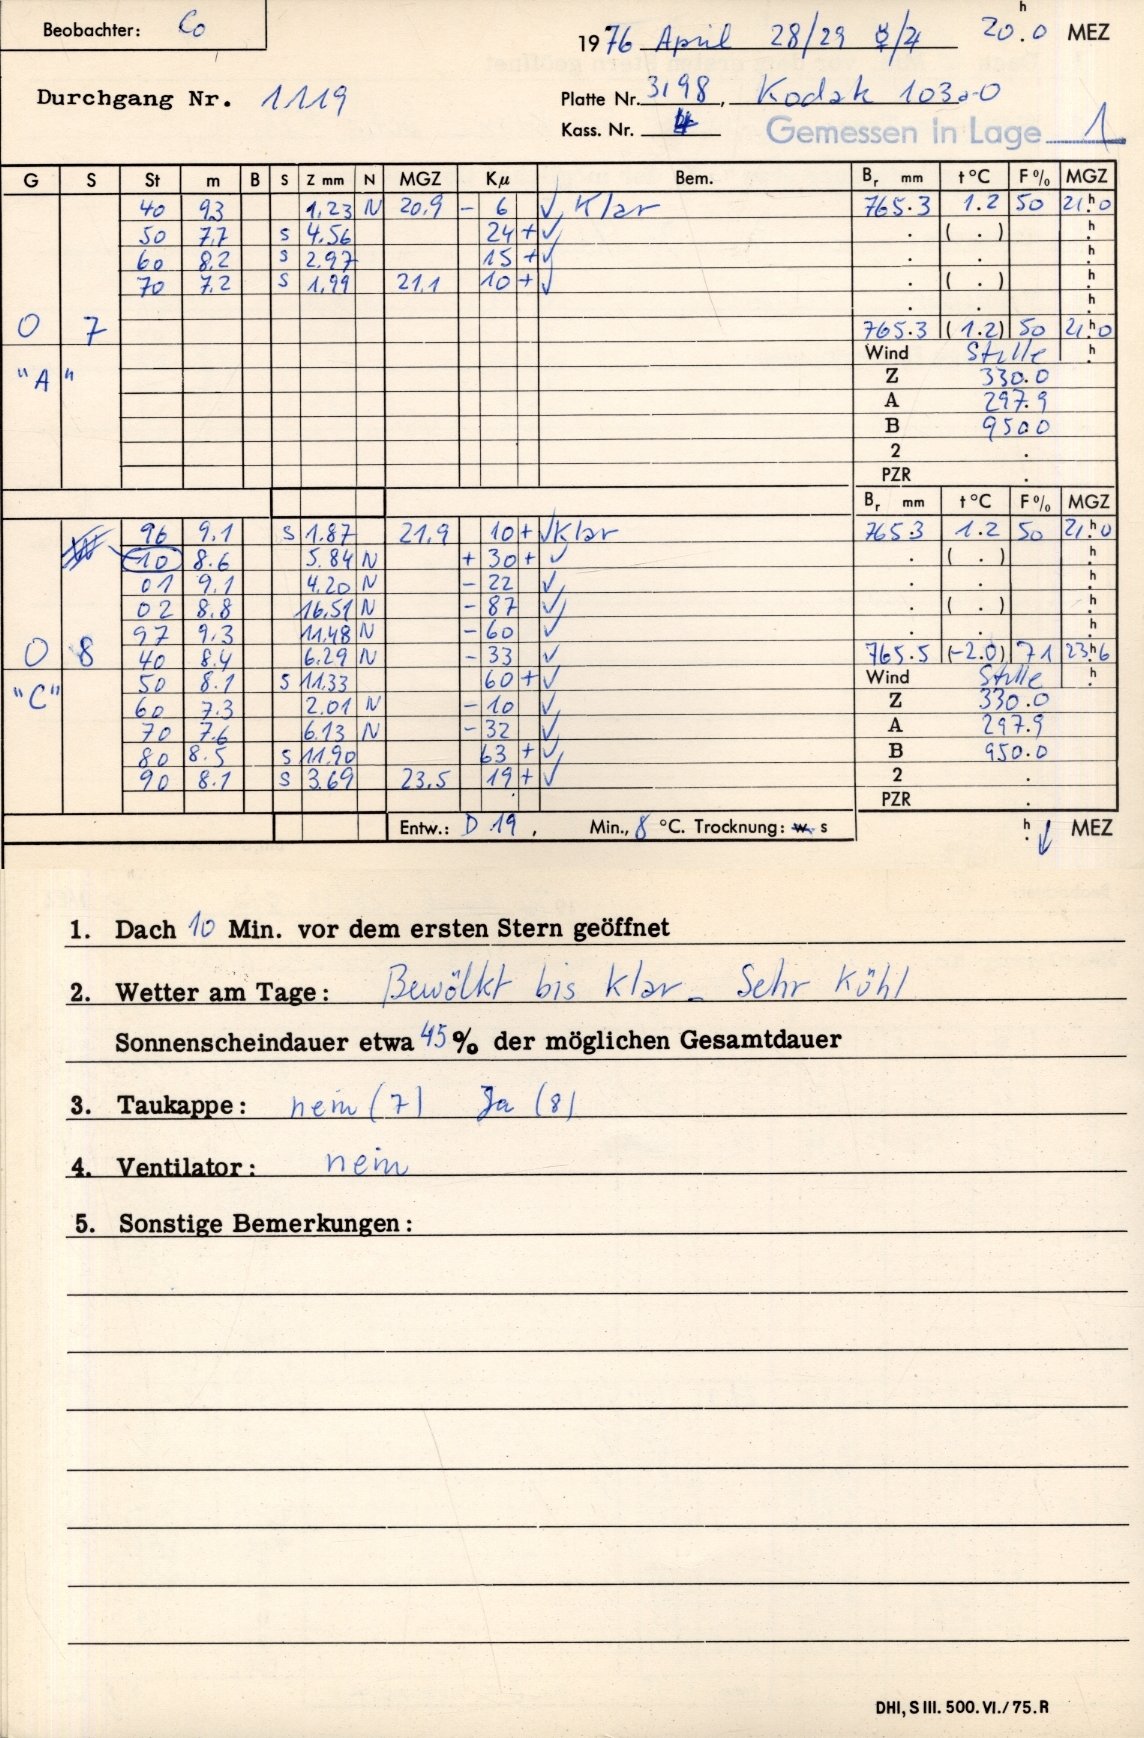 Beobachter: Co
1976 April 28/29 ☿/♃ 20.0 h MEZ
Durchgang Nr. 1119
Platte Nr. 3198, Kodak 103a-O
Kass. Nr. 4
Gemessen in Lage 1
G S St m B S Z mm N MGZ Kμ Bem. Br mm t °C F % MGZ
40 9.3 1.23 N 20.9 - 6 √ Klar 765.3 1.2 50 21.h0
50 7.7 s 4.56 24 + √ . ( . ) h
60 8.2 s 2.97 15 + √ . . h
70 7.2 s 1.99 21.1 10 + √ . ( . ) h
. . h
0 7 765.3 (1.2) 50 21.h0
Wind Stille h
"A" Z 330.0
A 297.9
B 950.0
2 .
PZR .
Br mm t °C F % MGZ
96 9.1 s 1.87 21.9 10 + √ Klar 765.3 1.2 50 21.h0
10 8.6 5.84 N + 30 + √ . ( . ) h
01 9.1 4.20 N - 22 √ . . h
02 8.8 16.51 N - 87 √ . ( . ) h
97 9.3 11.48 N - 60 √ . . h
0 8 40 8.4 6.29 N - 33 √ 765.5 (-2.0) 71 23.h6
"C" 50 8.1 s 11.33 60 + √ Wind Stille h
60 7.3 2.01 N - 10 √ Z 330.0
70 7.6 6.13 N - 32 √ A 297.9
80 8.5 s 11.90 63 + √ B 950.0
90 8.1 s 3.69 23.5 19 + √ 2 .
PZR .
Entw.: D 19, Min., 8 °C. Trocknung: w s h MEZ
1. Dach 10 Min. vor dem ersten Stern geöffnet
2. Wetter am Tage: Bewölkt bis klar - Sehr kühl
Sonnenscheindauer etwa 45 % der möglichen Gesamtdauer
3. Taukappe: nein (7) Ja (8)
4. Ventilator: nein
5. Sonstige Bemerkungen:
DHI, S III. 500. VI./75. R